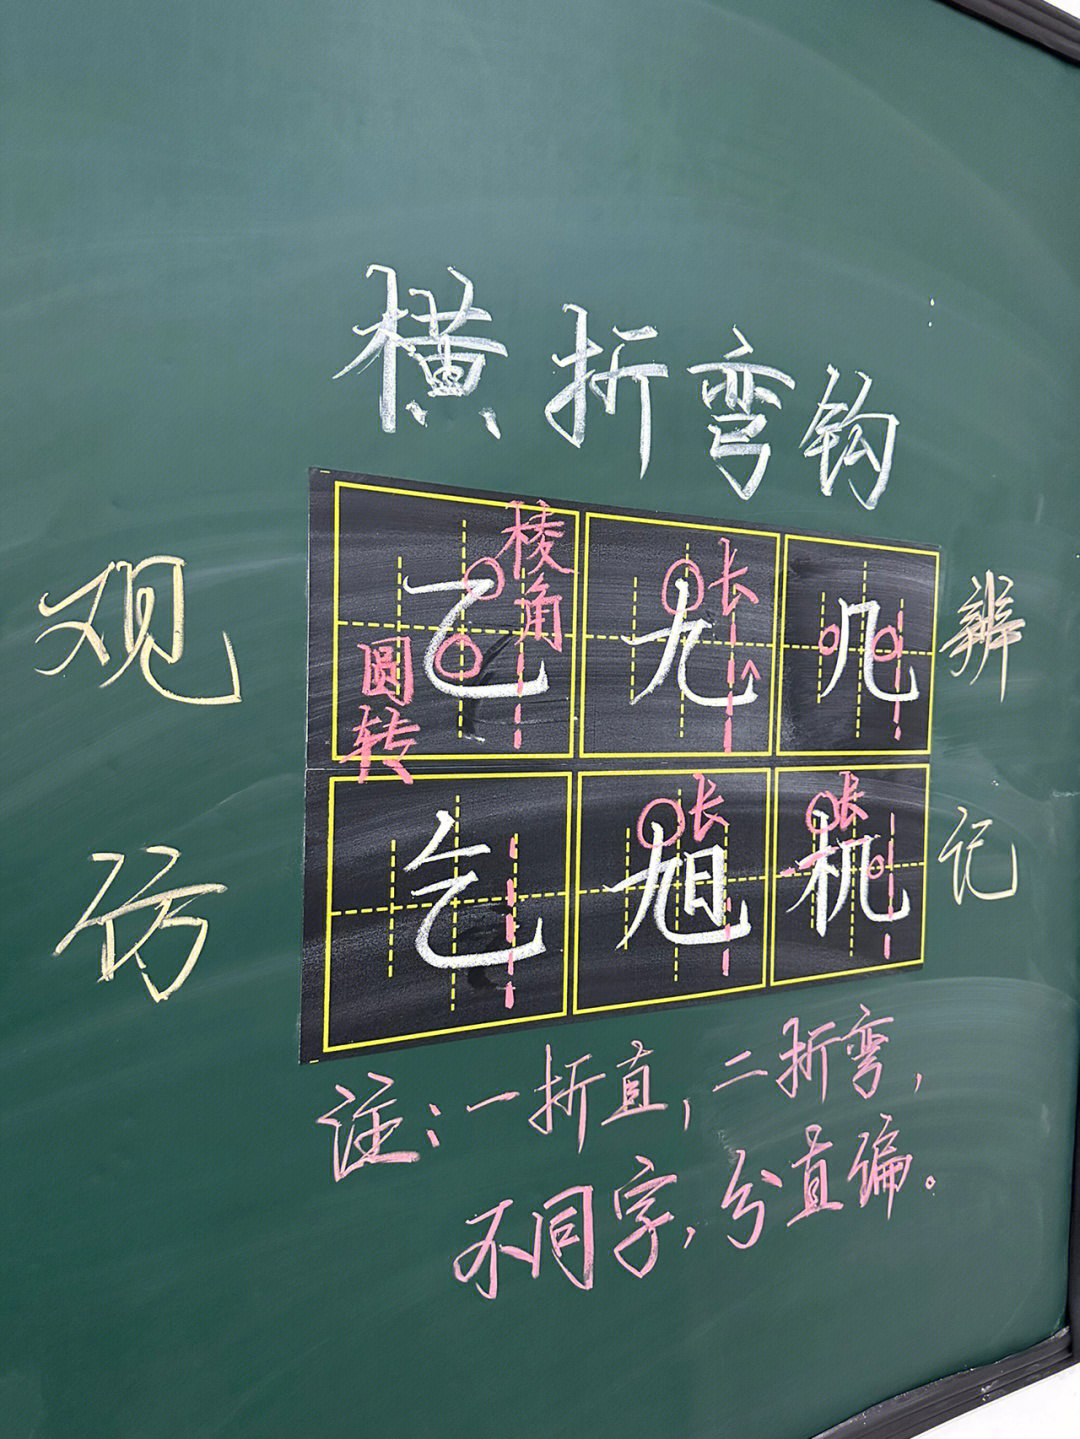 横折弯钩
观
仿
辨
记
棱角
圆转
乙
长
九
几
乞
长
旭
长
机
注：一折直，二折弯，
不同字，分直偏。